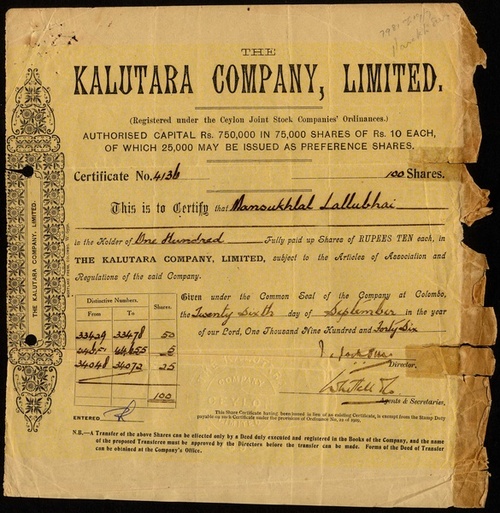 THE
KALUTARA COMPANY, LIMITED.
(Registered under the Ceylon Joint Stock Companies' Ordinances.)
AUTHORISED CAPITAL Rs. 750,000 IN 75,000 SHARES OF Rs. 10 EACH,
OF WHICH 25,000 MAY BE ISSUED AS PREFERENCE SHARES.
Certificate No. 4136 100 Shares.
This is to Certify that Mansukhlal Lallubhai
is the Holder of One Hundred Fully paid up Shares of RUPEES TEN each, in
THE KALUTARA COMPANY, LIMITED, subject to the Articles of Association and
Regulations of the said Company.
Distinctive Numbers. Shares.
From To
33429 33478 50
34048 34072 25
100
Given under the Common Seal of the Company at Colombo,
the Twenty Sixth day of September in the year
of our Lord, One Thousand Nine Hundred and Forty Six
Director.
Agents & Secretaries.
ENTERED
This Share Certificate having been issued in lieu of an existing Certificate, is exempt from the Stamp Duty
payable on such Certificate under the provision of Ordinance No. 22 of 1909.
N.B.—A Transfer of the above Shares can be effected only by a Deed duly executed and registered in the Books of the Company, and the name
of the proposed Transferee must be approved by the Directors before the transfer can be made. Forms of the Deed of Transfer
can be obtained at the Company's Office.
THE KALUTARA COMPANY, LIMITED.